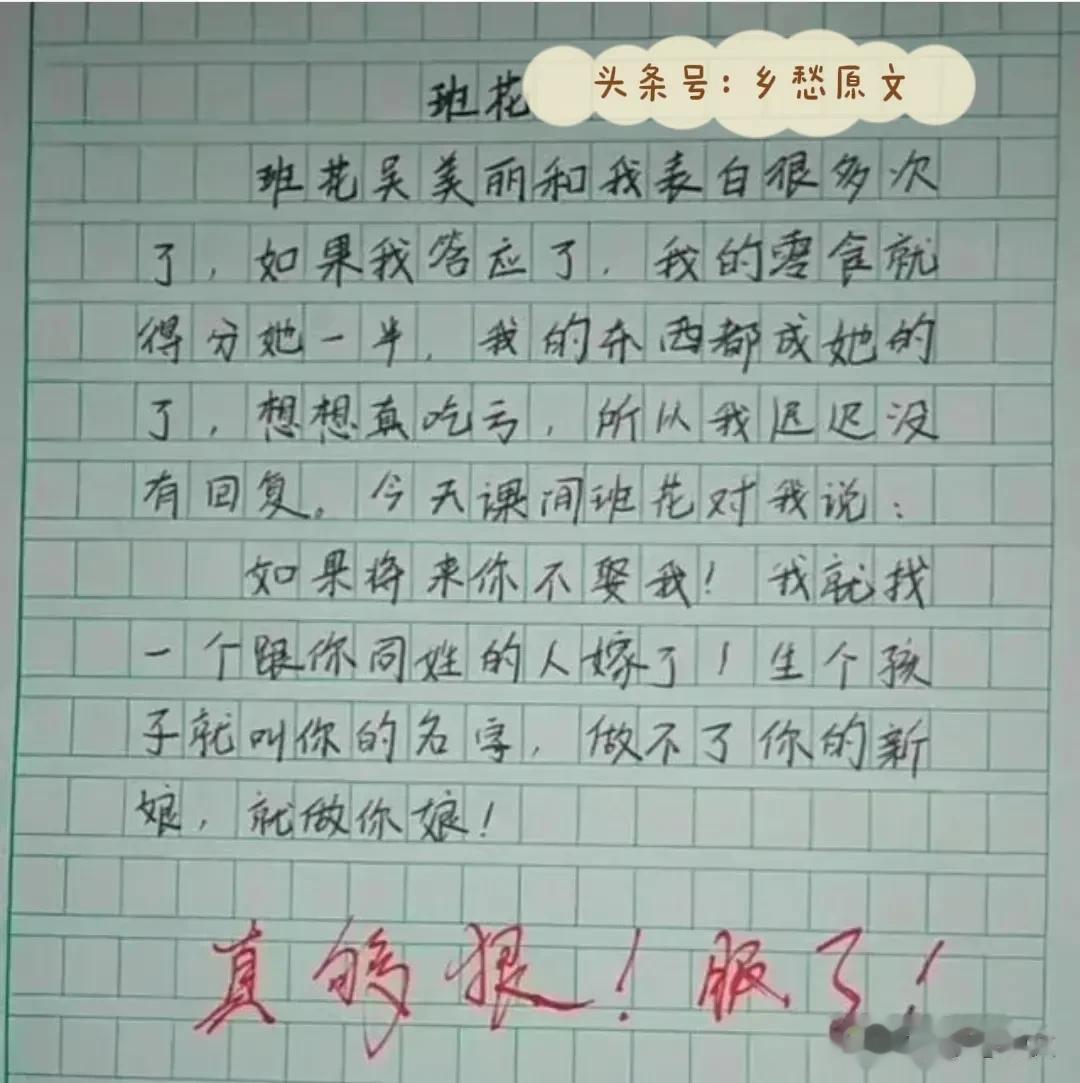 头条号:乡愁原文
班花
班花吴美丽和我表白很多次
了,如果我答应了,我的零食就
得分她一半,我的东西都成她的
了,想想真吃亏,所以我迟迟没
有回复。今天课间班花对我说:
如果将来你不娶我!我就找
一个跟你同姓的人嫁了!生个孩
子就叫你的名字,做不了你的新
娘,就做你娘!
真够狠!服了!